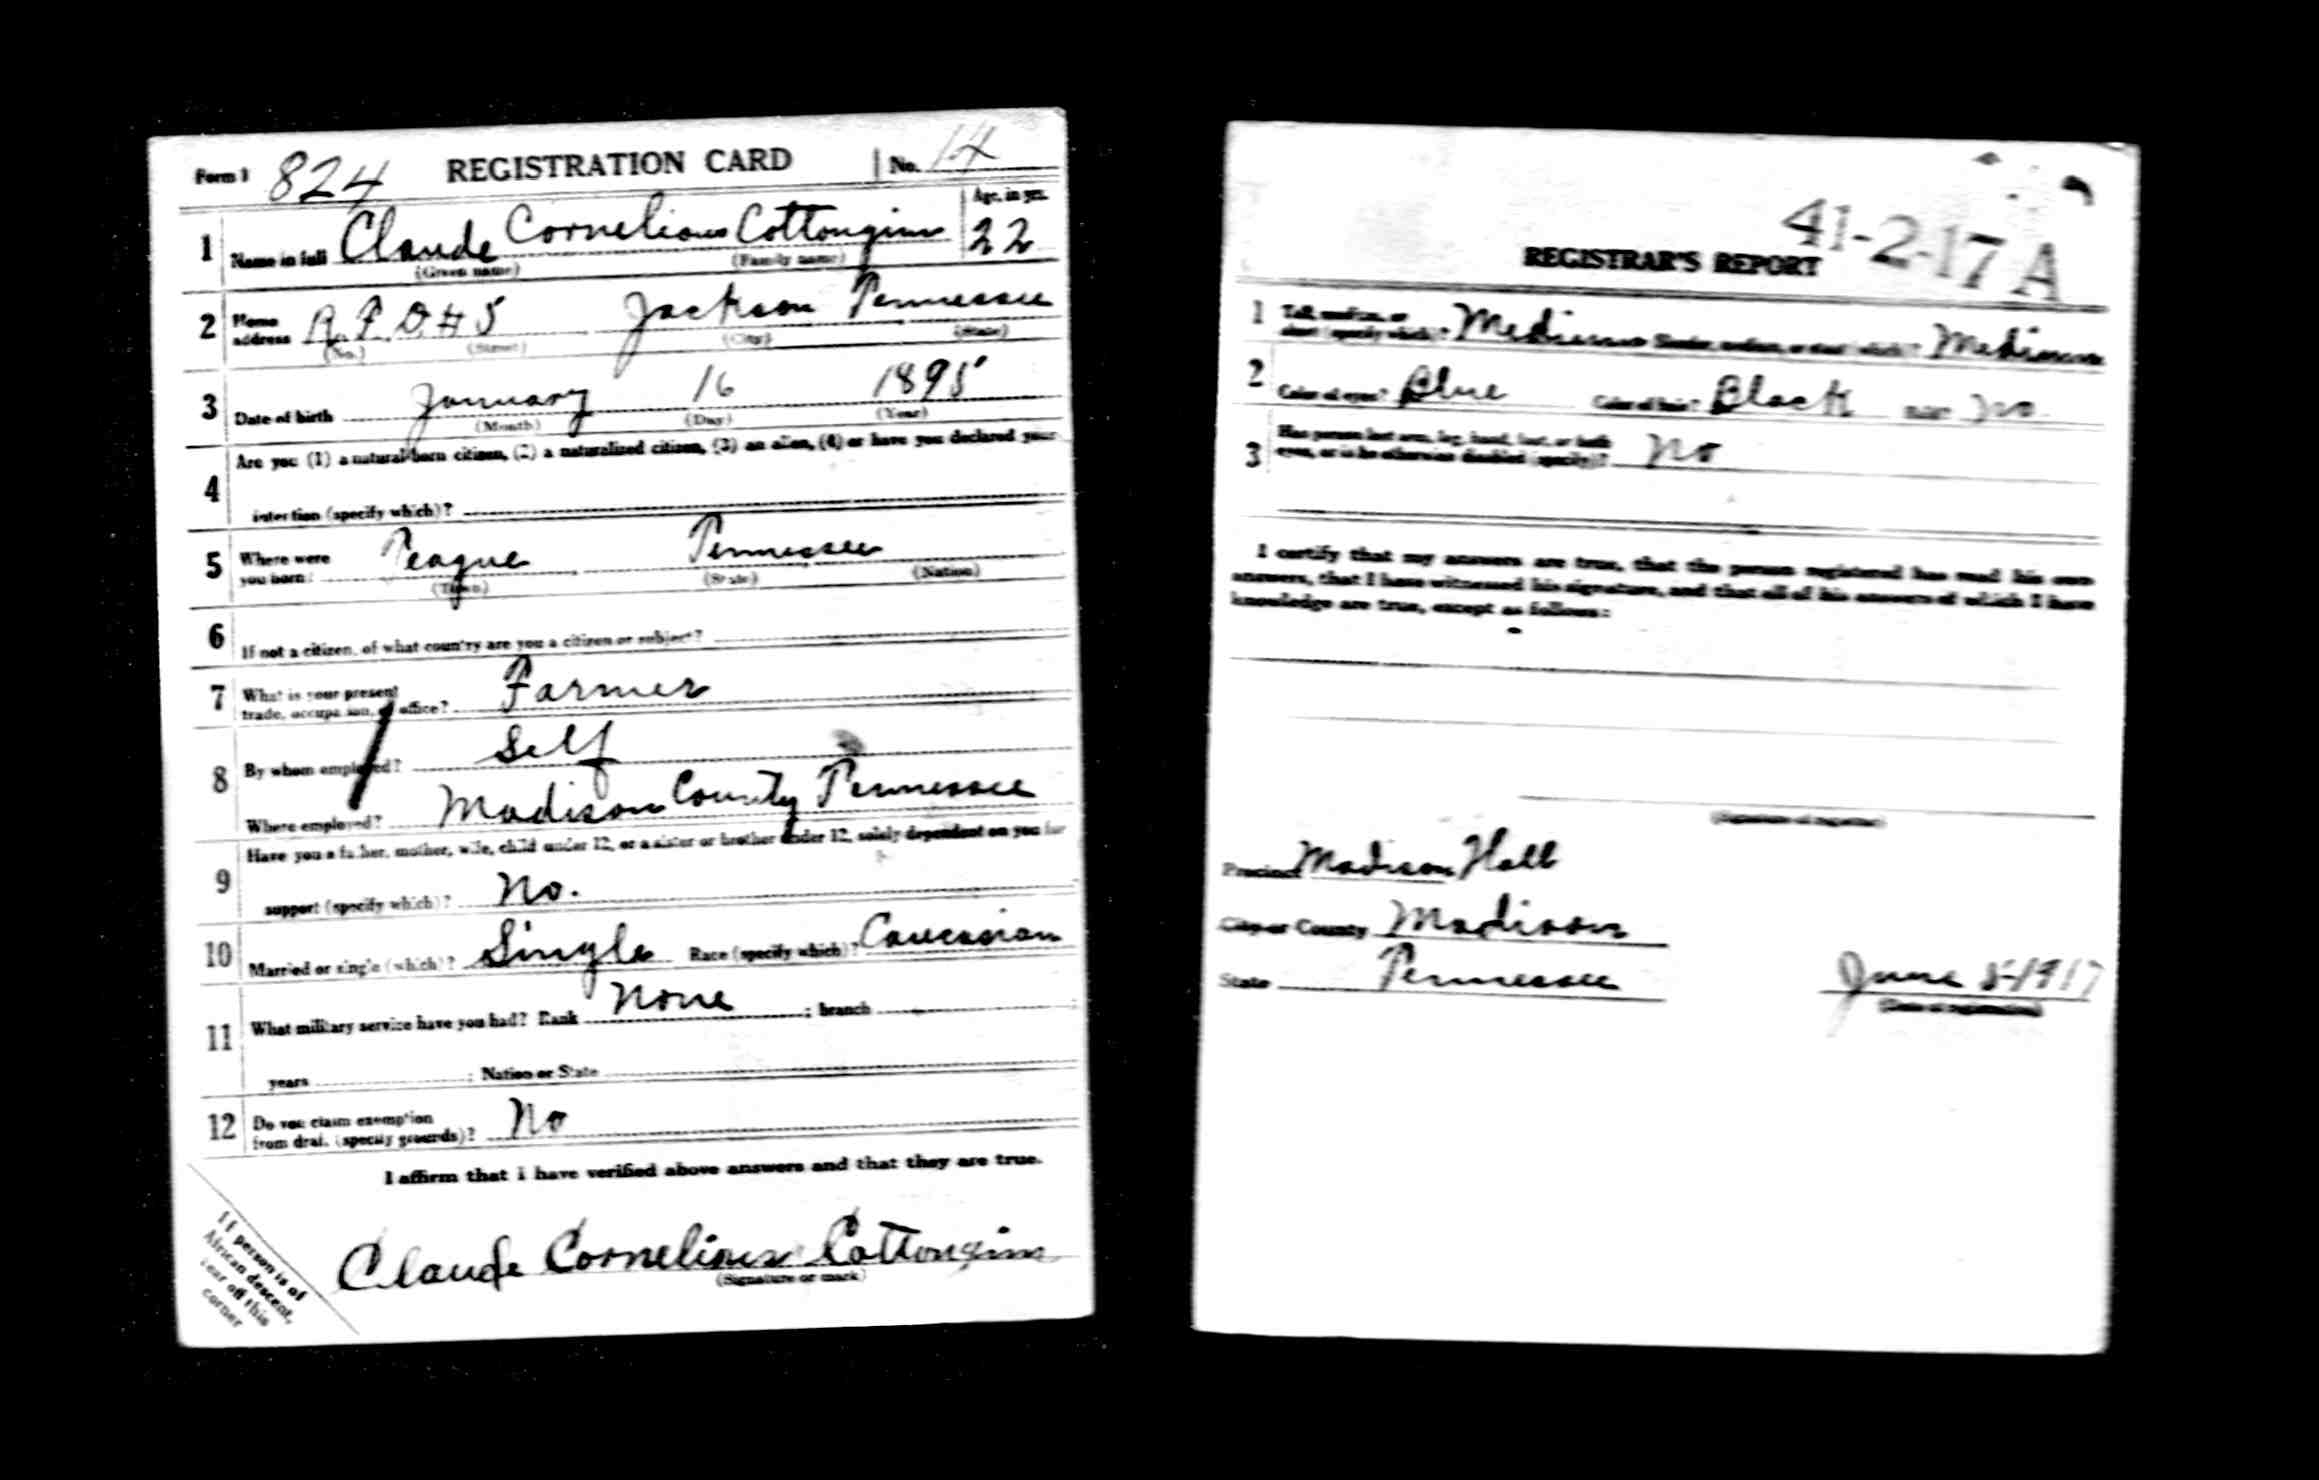 Form 1 824 REGISTRATION CARD No. 14
1 Name in full Claude Cornelious Cottongim Age, in yrs. 22
(Given name) (Family name)
2 Home address R.F.D. #5 Jackson Tennessee
(No.) (Street) (City) (State)
3 Date of birth January 16 1895
(Month) (Day) (Year)
4 Are you (1) a natural-born citizen, (2) a naturalized citizen, (3) an alien, (4) or have you declared your
intention (specify which)?
5 Where were you born? Teague Tennessee
(Town) (State) (Nation)
6 If not a citizen, of what country are you a citizen or subject?
7 What is your present
trade, occupation, or office? Farmer
8 By whom employed? Self
Where employed? Madison County Tennessee
9 Have you a father, mother, wife, child under 12, or a sister or brother under 12, solely dependent on you for
support (specify which)? No.
10 Married or single (which)? Single Race (specify which)? Caucasian
11 What military service have you had? Rank None ; branch
years ; Nation or State
12 Do you claim exemption
from draft (specify grounds)? No
I affirm that I have verified above answers and that they are true.
Claude Cornelious Cottongim
(Signature or mark)
If person is of
African descent,
tear off this
corner
41-2-17 A
REGISTRAR'S REPORT
1 Tall, medium, or
short (specify which)? Medium Slender, medium, or stout (which)? Medium
2 Color of eyes? Blue Color of hair? Black Bald? No
3 Has person lost arm, leg, hand, foot, or both
eyes, or is he otherwise disabled (specify)? No
I certify that my answers are true, that the person registered has read his own
answers, that I have witnessed his signature, and that all of his answers of which I have
knowledge are true, except as follows:
(Signature of registrar)
Precinct Madison Hall
City or County Madison
State Tennessee June 5-1917
(Date of registration)